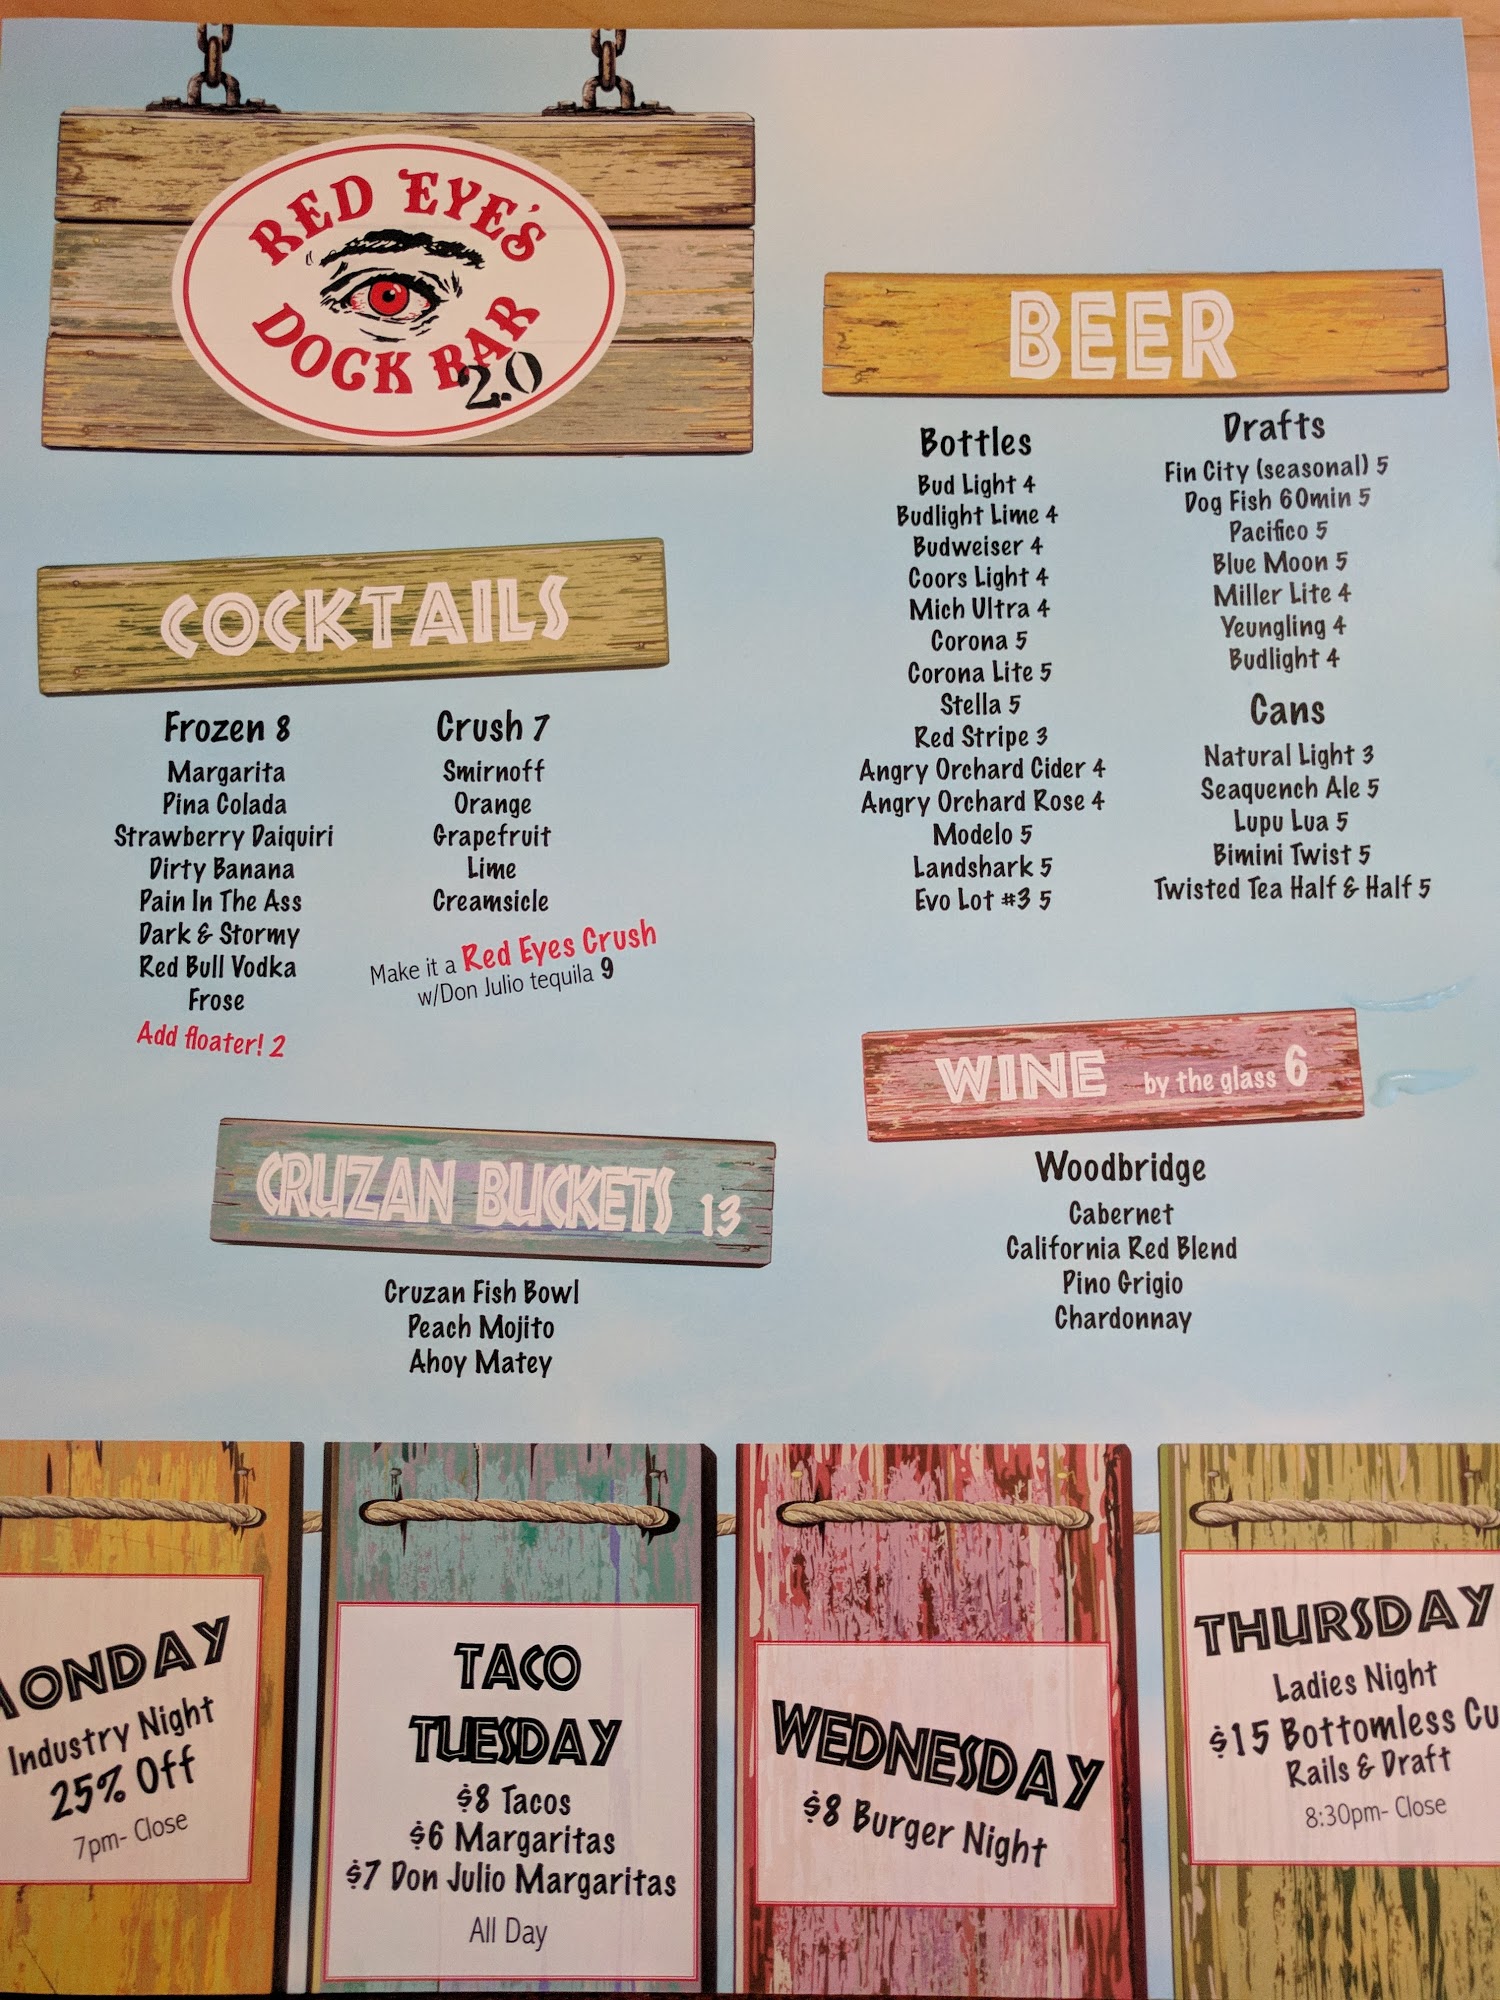 RED EYE'S
DOCK BAR
2.0
COCKTAILS
Frozen 8
Margarita
Pina Colada
Strawberry Daiquiri
Dirty Banana
Pain In The Ass
Dark & Stormy
Red Bull Vodka
Frose
Add floater! 2
Crush 7
Smirnoff
Orange
Grapefruit
Lime
Creamsicle
Make it a Red Eyes Crush
w/Don Julio tequila 9
CRUZAN BUCKETS 13
Cruzan Fish Bowl
Peach Mojito
Ahoy Matey
BEER
Bottles
Bud Light 4
Budlight Lime 4
Budweiser 4
Coors Light 4
Mich Ultra 4
Corona 5
Corona Lite 5
Stella 5
Red Stripe 3
Angry Orchard Cider 4
Angry Orchard Rose 4
Modelo 5
Landshark 5
Evo Lot #3 5
Drafts
Fin City (seasonal) 5
Dog Fish 60min 5
Pacifico 5
Blue Moon 5
Miller Lite 4
Yeungling 4
Budlight 4
Cans
Natural Light 3
Seaquench Ale 5
Lupu Lua 5
Bimini Twist 5
Twisted Tea Half & Half 5
WINE by the glass 6
Woodbridge
Cabernet
California Red Blend
Pino Grigio
Chardonnay
MONDAY
Industry Night
25% Off
7pm- Close
TACO
TUESDAY
$8 Tacos
$6 Margaritas
$7 Don Julio Margaritas
All Day
WEDNESDAY
$8 Burger Night
THURSDAY
Ladies Night
$15 Bottomless Cu
Rails & Draft
8:30pm- Close